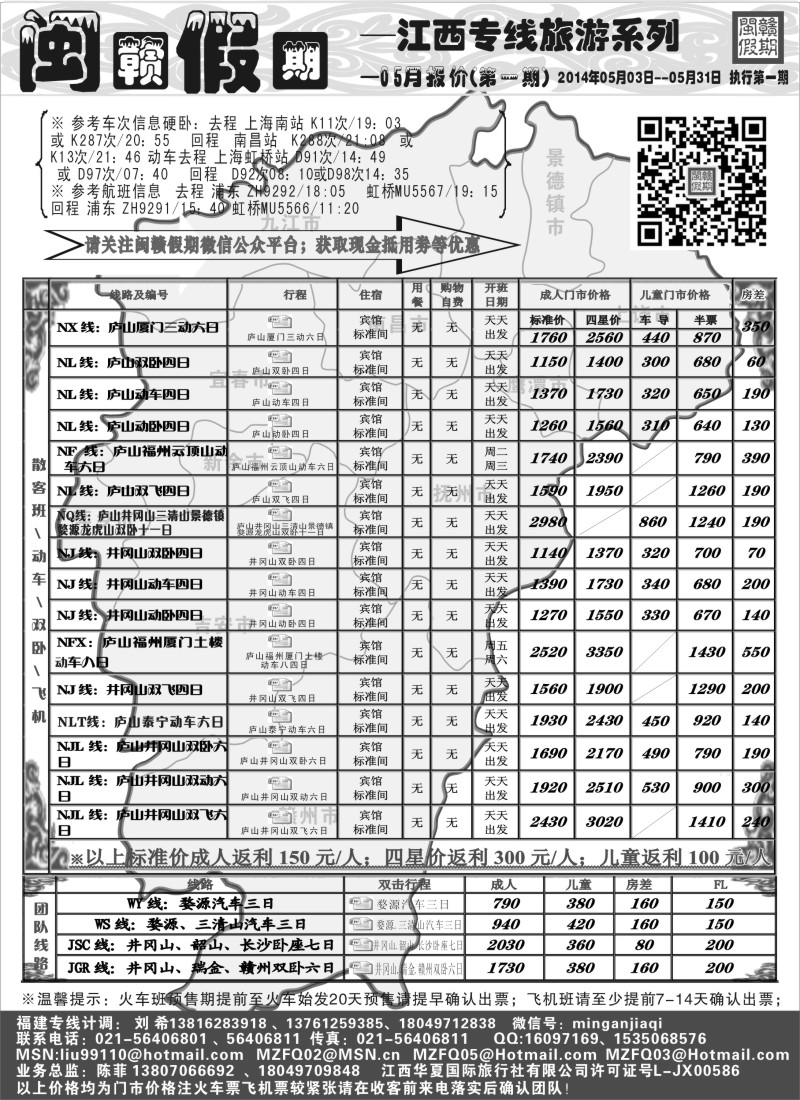 闽赣假期
—江西专线旅游系列
—05月报价(第一期) 2014年05月03日--05月31日 执行第一期
闽赣假期
※ 参考车次信息硬卧：去程 上海南站 K11次/19：03
或 K287次/20：55 回程 南昌站 K288次/21:08 或
K13次/21：46 动车去程 上海虹桥站 D91次/14：49
或 D97次/07：40 回程 D92次08：10或D98次14：35
※ 参考航班信息 去程 浦东 ZH9292/18:05 虹桥MU5567/19：15
回程 浦东 ZH9291/15：40 虹桥MU5566/11:20
请关注闽赣假期微信公众平台；获取现金抵用券等优惠
景德镇市
九江市
南昌市
上饶市
宜春市
鹰潭市
新余市
抚州市
吉安市
赣州市
散客班\动车\双卧\飞机
线路及编号 行程 住宿 用餐 购物自费 开班日期 成人门市价格 儿童门市价格 房差
标准价 四星价 车导 半票
NX 线：庐山厦门三动六日 庐山厦门三动六日 宾馆标准间 无 无 天天出发 1760 2560 440 870 350
NL 线：庐山双卧四日 庐山双卧四日 宾馆标准间 无 无 天天出发 1150 1400 300 680 60
NL 线：庐山动车四日 庐山动车四日 宾馆标准间 无 无 天天出发 1370 1730 320 650 190
NL 线：庐山动卧四日 庐山动卧四日 宾馆标准间 无 无 天天出发 1260 1560 310 640 130
NF 线：庐山福州云顶山动车六日 庐山福州云顶山动车六日 宾馆标准间 无 无 周二周三 1740 2390 790 390
NL 线：庐山双飞四日 庐山双飞四日 宾馆标准间 无 无 天天出发 1590 1950 1260 190
NQ线：庐山井冈山三清山景德镇婺源龙虎山双卧十一日 庐山井冈山三清山景德镇婺源龙虎山双卧十一日 宾馆标准间 无 无 天天出发 2980 860 1240 190
NJ 线：井冈山双卧四日 井冈山双卧四日 宾馆标准间 无 无 天天出发 1140 1370 320 700 70
NJ 线：井冈山动车四日 井冈山动车四日 宾馆标准间 无 无 天天出发 1390 1730 340 680 200
NJ 线：井冈山动卧四日 井冈山动卧四日 宾馆标准间 无 无 天天出发 1270 1550 330 670 140
NFX：庐山福州厦门土楼动车八日 庐山福州厦门土楼动车八四日 宾馆标准间 无 无 周五周六 2520 3350 1430 550
NJ 线：井冈山双飞四日 井冈山双飞四日 宾馆标准间 无 无 天天出发 1560 1900 1290 200
NLT线：庐山泰宁动车六日 庐山泰宁动车六日 宾馆标准间 无 无 天天出发 1930 2430 450 920 140
NJL 线：庐山井冈山双卧六日 庐山井冈山双卧六日 宾馆标准间 无 无 天天出发 1690 2170 490 790 190
NJL 线：庐山井冈山双动六日 庐山井冈山双动六日 宾馆标准间 无 无 天天出发 1920 2510 530 900 300
NJL 线：庐山井冈山双飞六日 庐山井冈山双飞六日 宾馆标准间 无 无 天天出发 2430 3020 1410 240
※以上标准价成人返利 150 元/人；四星价返利 300 元/人；儿童返利 100 元/人
团队线路
线路 双击行程 成人 儿童 房差 FL
WY 线：婺源汽车三日 婺源汽车三日 790 380 160 150
WS 线：婺源、三清山汽车三日 婺源.三清山汽车三日 940 420 160 150
JSC 线：井冈山、韶山、长沙卧座七日 井冈山.韶山.长沙卧座七日 2030 360 80 200
JGR 线：井冈山、瑞金、赣州双卧六日 井冈山.瑞金.赣州双卧六日 1730 380 160 200
※温馨提示：火车班预售期提前至火车始发20天预售请提早确认出票；飞机班请至少提前7-14天确认出票；
福建专线计调： 刘 希13816283918 、13761259385、18049712838 微信号：minganjiaqi
联系电话：021-56406801 、56406811 传真：021-56406811 QQ:16097169、1535068576
MSN:liu99110@hotmail.com MZFQ02@MSN.cn MZFQ05@Hotmail.com MZFQ03@Hotmail.com
业务总监：陈菲 13807066692 、18049709848 江西华夏国际旅行社有限公司许可证号L-JX00586
以上价格均为门市价格注火车票飞机票较紧张请在收客前来电落实后确认团队！